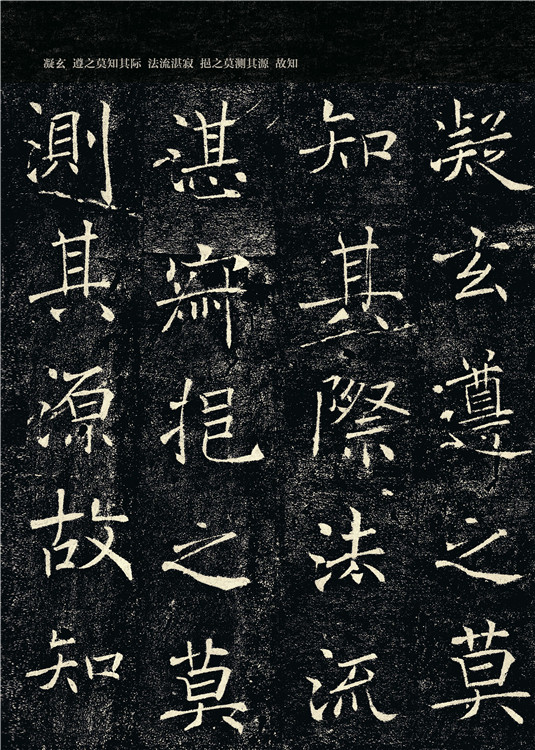 凝玄 遵之莫知其际 法流湛寂 挹之莫测其源 故知
凝玄遵之莫
知其際法流
湛寂挹之莫
測其源故知